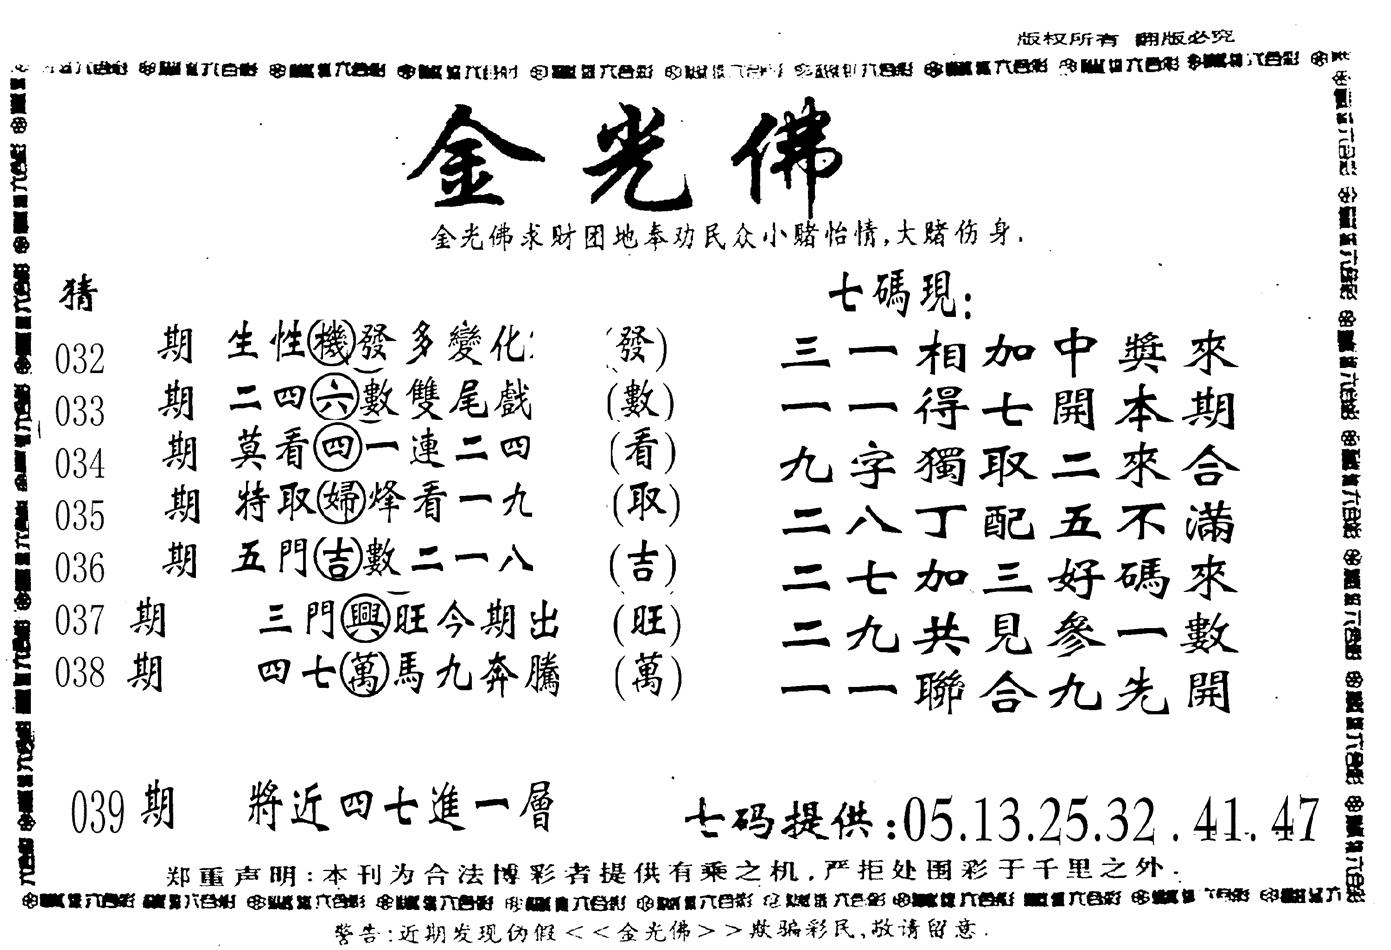 版权所有 翻版必究
金光佛
金光佛求财团地奉劝民众小赌怡情,大赌伤身.
猜
七碼現:
032 期 生性機發多變化 (發) 三一相加中獎來
033 期 二四六數雙尾戲 (數) 一一得七開本期
034 期 莫看四一連二四 (看) 九字獨取二來合
035 期 特取婦烽看一九 (取) 二八丁配五不滿
036 期 五門吉數二一八 (吉) 二七加三好碼來
037 期 三門興旺今期出 (旺) 二九共見參一數
038 期 四七萬馬九奔騰 (萬) 一一聯合九先開
039 期 將近四七進一層 七码提供:05.13.25.32.41.47
郑重声明:本刊为合法博彩者提供有乘之机,严拒处圈彩于千里之外.
警告:近期发现伪假<<金光佛>>欺骗彩民,敬请留意.